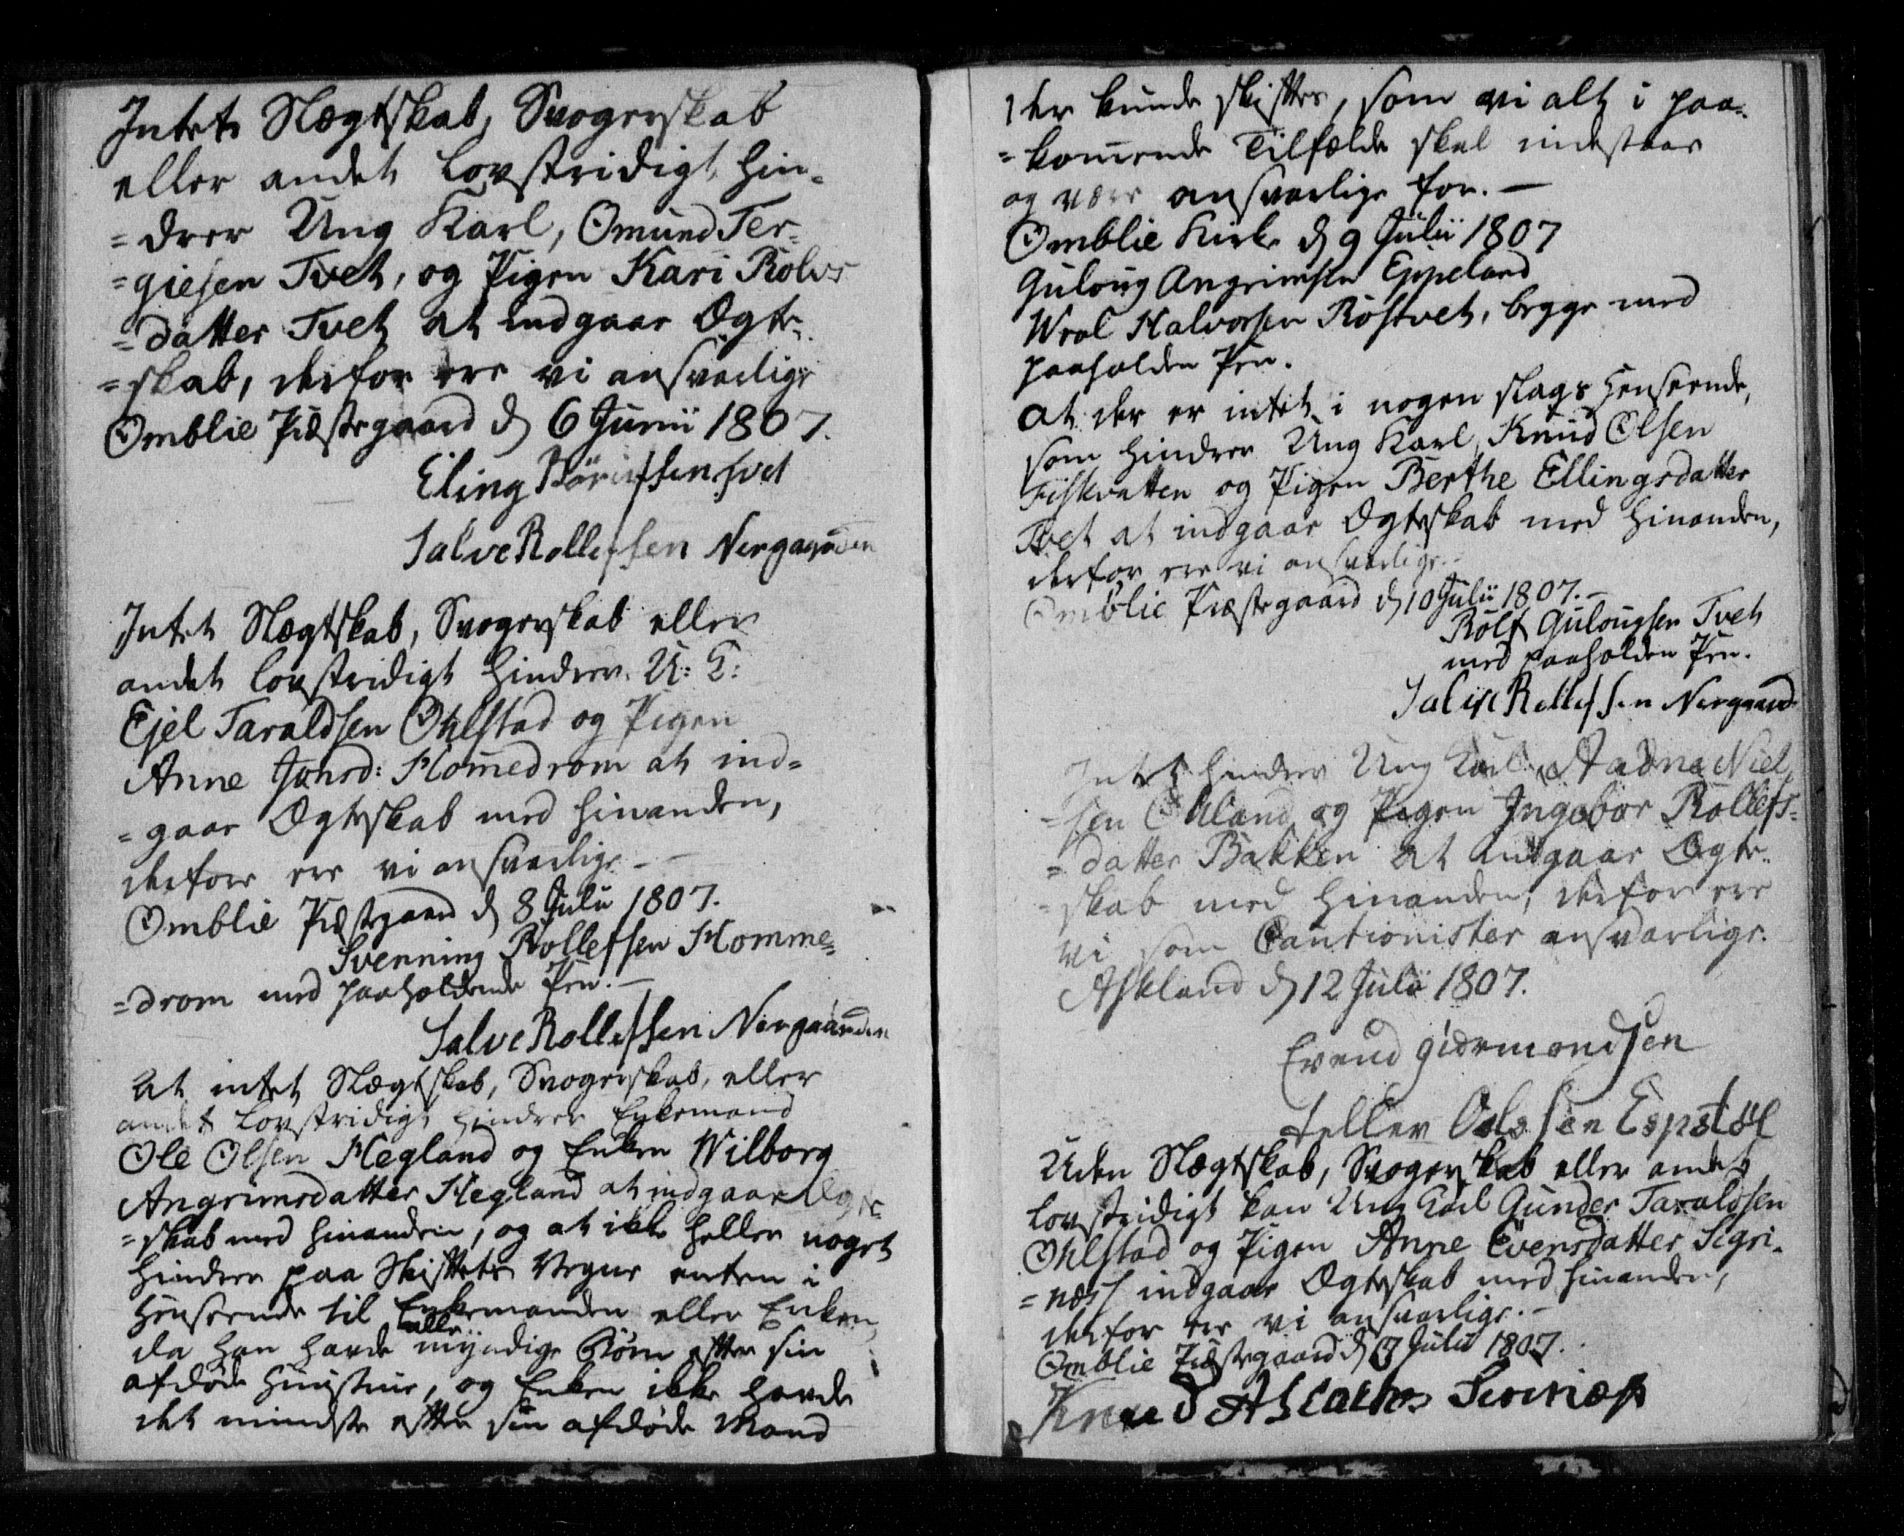 Intet Slægtskab, Svogerskab
eller andet lovstridigt hin-
=drer Ung Karl, Omund Ter-
=giesen Tvet, og Pigen Kari Rolvs
=datter Tvet at indgaae Ægte-
=skab, derfor ere vi ansvarlige
Omblie Præstegaard d 6 Junii 1807.
Eling Tvet
Salve Rollefssen Nergaarden
Intet Slægtskab, Svogerskab eller
andet lovstridigt hindrer U: K:
Ejel Taraldsen Ohlstad og Pigen
Anne Jonsd: Hommedrom at ind=
=gaae Ægteskab med hinanden,
derfore ere vi ansvarlige -
Omblie Præstegaard d 8 Julii 1807.
Svenning Rollefsen Homme=
=drom med paaholdende Pen. -
Salve Rollefssen Nergaarden
At intet Slægtskab, Svogerskab, eller
andet lovstridigt hindrer Enkemand
Ole Olsen Hegland og Enken Wilborg
Angrimsdatter Hegland at indgaae Ægte-
=skab med hinanden, og at ikke heller noget
hindrer paa Skiftets Vegne enten i
Henseende til Enkemanden eller Enken,
alle
da han havde myndige Børn efter sin
afdøde Hustrue, og Enken ikke havde
det mindste efter sin afdøde Mand
der kunde skiftes, som vi alt i paa-
=kommende Tilfælde skal indestaae
og være ansvarlige for. -
Omblie Kirke d 9 Julii 1807
Guloug Angrimsen Eppeland
Wraal Halvorsen Røstvet, begge med
paaholden Pen.
At der er intet i nogen slags Henseende,
som hindrer Ung Karl, Knud Olsen
Fiskvatten og Pigen Berthe Ellingsdatter
Tvet at indgaae Ægteskab med hinanden,
derfor ere vi ansvarlige. -
Omblie Præstegaard d 10 Julii 1807. -
Rolf Gulougsen Tvet
med paaholden Pen.
Salve Rollefssen Nergaard
Intet hindrer Ung Karl Aadne Niel
=sen Øland og Pigen Ingebor Rollefs=
=datter Bakken at indgaae Ægte-
=skab med hinanden, derfor ere
vi som Cautionister ansvarlige.
Askland d 12 Julii 1807.
Evend gidermondsen
tellev Olafsen Espstøl
Uden Slægtskab, Svogerskab eller andet
lovstridigt kan Ung Karl Gunder Taraldsen
Ohlstad og Pigen Anne Evensdatter Sigri-
=næs indgaae Ægteskab med hinanden,
derfor ere vi ansvarlige. -
Omblie Præstegaard d Julii 1807.
Knud